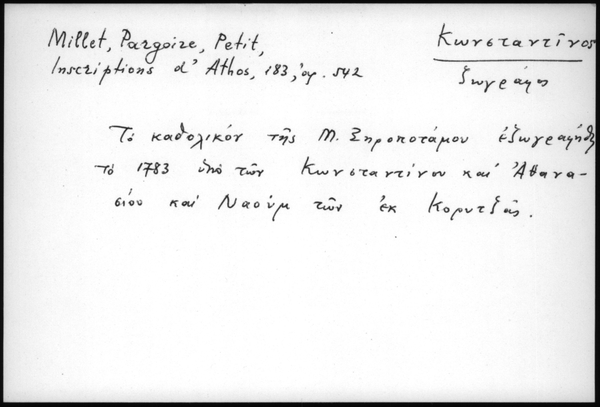 Millet, Pargoire, Petit,
Inscriptions d'Athos, 183, ἀρ. 542
Κωνσταντῖνος
ζωγράφος
Τὸ καθολικόν τῆς Μ. Ξηροποτάμου ἐζωγραφήθη
τό 1783 ὑπό τῶν Κωνσταντίνου καί Ἀθανα-
σίου καί Ναούμ τῶν ἐκ Κορυτζᾶς.